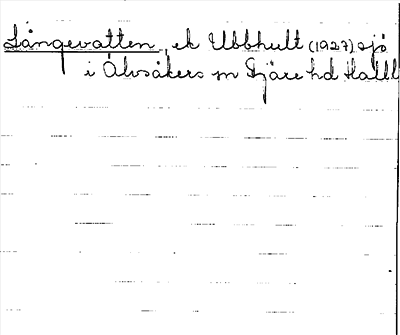 Långevatten, ek Ubbhult (1927) sjö
i Älvsåkers sn Fjäre hd Hall